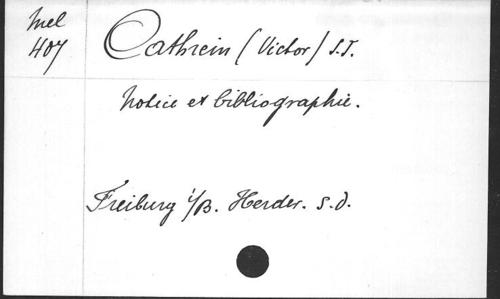 Mel
407
Cathrein (Victor) S.J.
Notice et bibliographie.
Freiburg i/B. Herder. S.d.